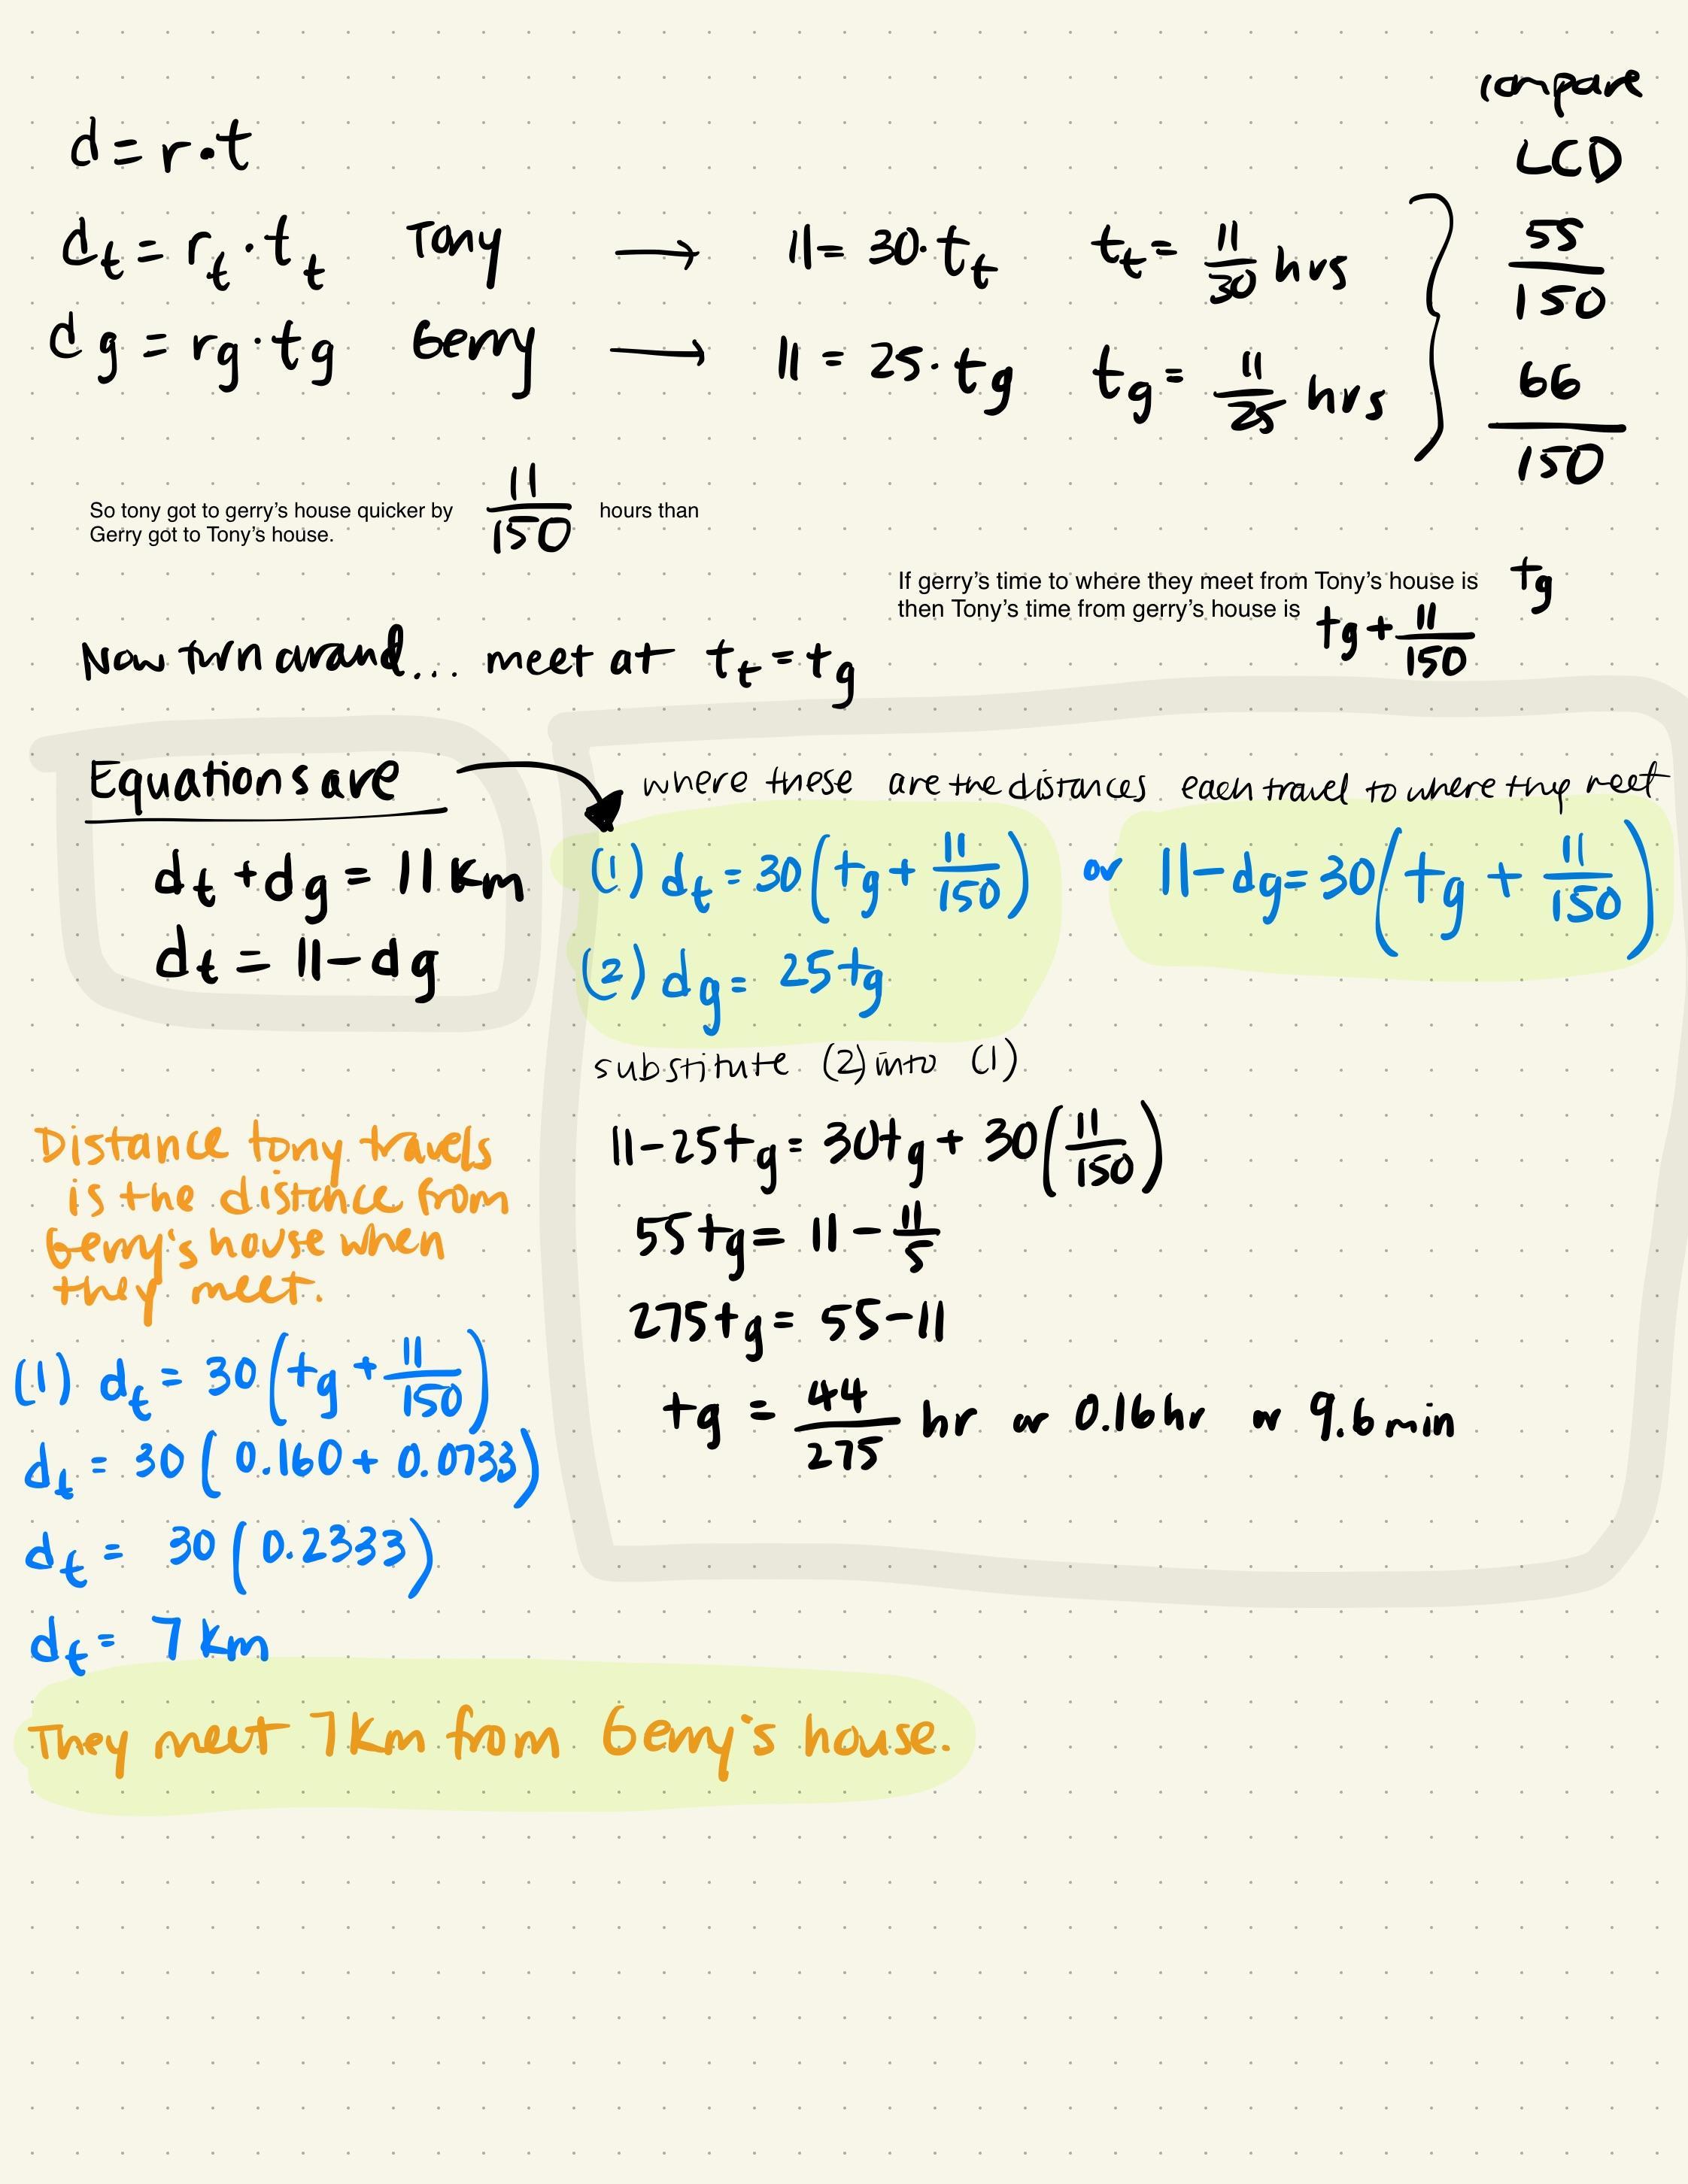 compare
d = r·t
LCD
d_t = r_t · t_t Tony → 11 = 30·t_t t_t = 11/30 hrs } 55/150
d_g = r_g · t_g Gerry → 11 = 25·t_g t_g = 11/25 hrs 66/150
So tony got to gerry's house quicker by 11/150 hours than
Gerry got to Tony's house.
If gerry's time to where they meet from Tony's house is t_g
then Tony's time from gerry's house is t_g + 11/150
Now turn around... meet at t_t = t_g
Equations are
d_t + d_g = 11 km
d_t = 11 - d_g
where these are the distances each travel to where they meet
(1) d_t = 30(t_g + 11/150) or 11 - d_g = 30(t_g + 11/150)
(2) d_g = 25t_g
substitute (2) into (1)
11 - 25t_g = 30t_g + 30(11/150)
55t_g = 11 - 11/5
275t_g = 55 - 11
t_g = 44/275 hr or 0.16 hr or 9.6 min
Distance tony travels
is the distance from
Gerry's house when
they meet.
(1) d_t = 30(t_g + 11/150)
d_t = 30(0.160 + 0.0733)
d_t = 30(0.2333)
d_t = 7 km
They meet 7 km from Gerry's house.